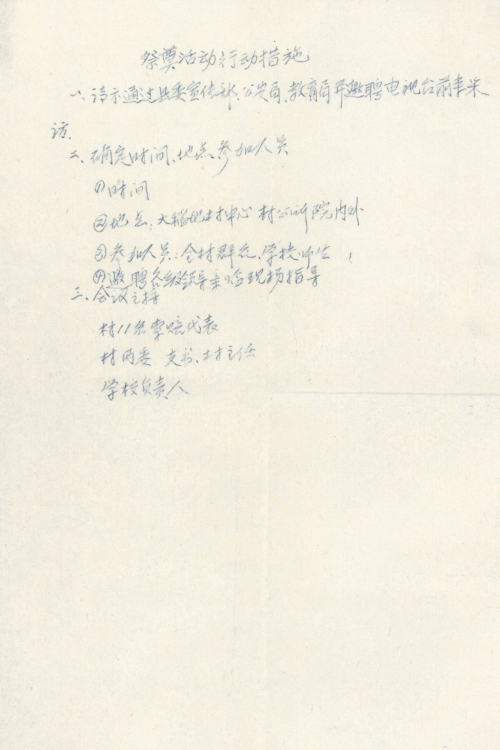 祭奠活动行动措施
一、请示通过县委宣传部、公安局、教育局并邀聘电视台前来采
访.
二、确定时间、地点、参加人员
①时间
②地点:大稻地村中心村公所院内外
③参加人员:全村群众、学校师生
④邀聘各级领导亲临现场指导
三、会议主持
村11名索赔代表
村两委 支书、村主任
学校负责人